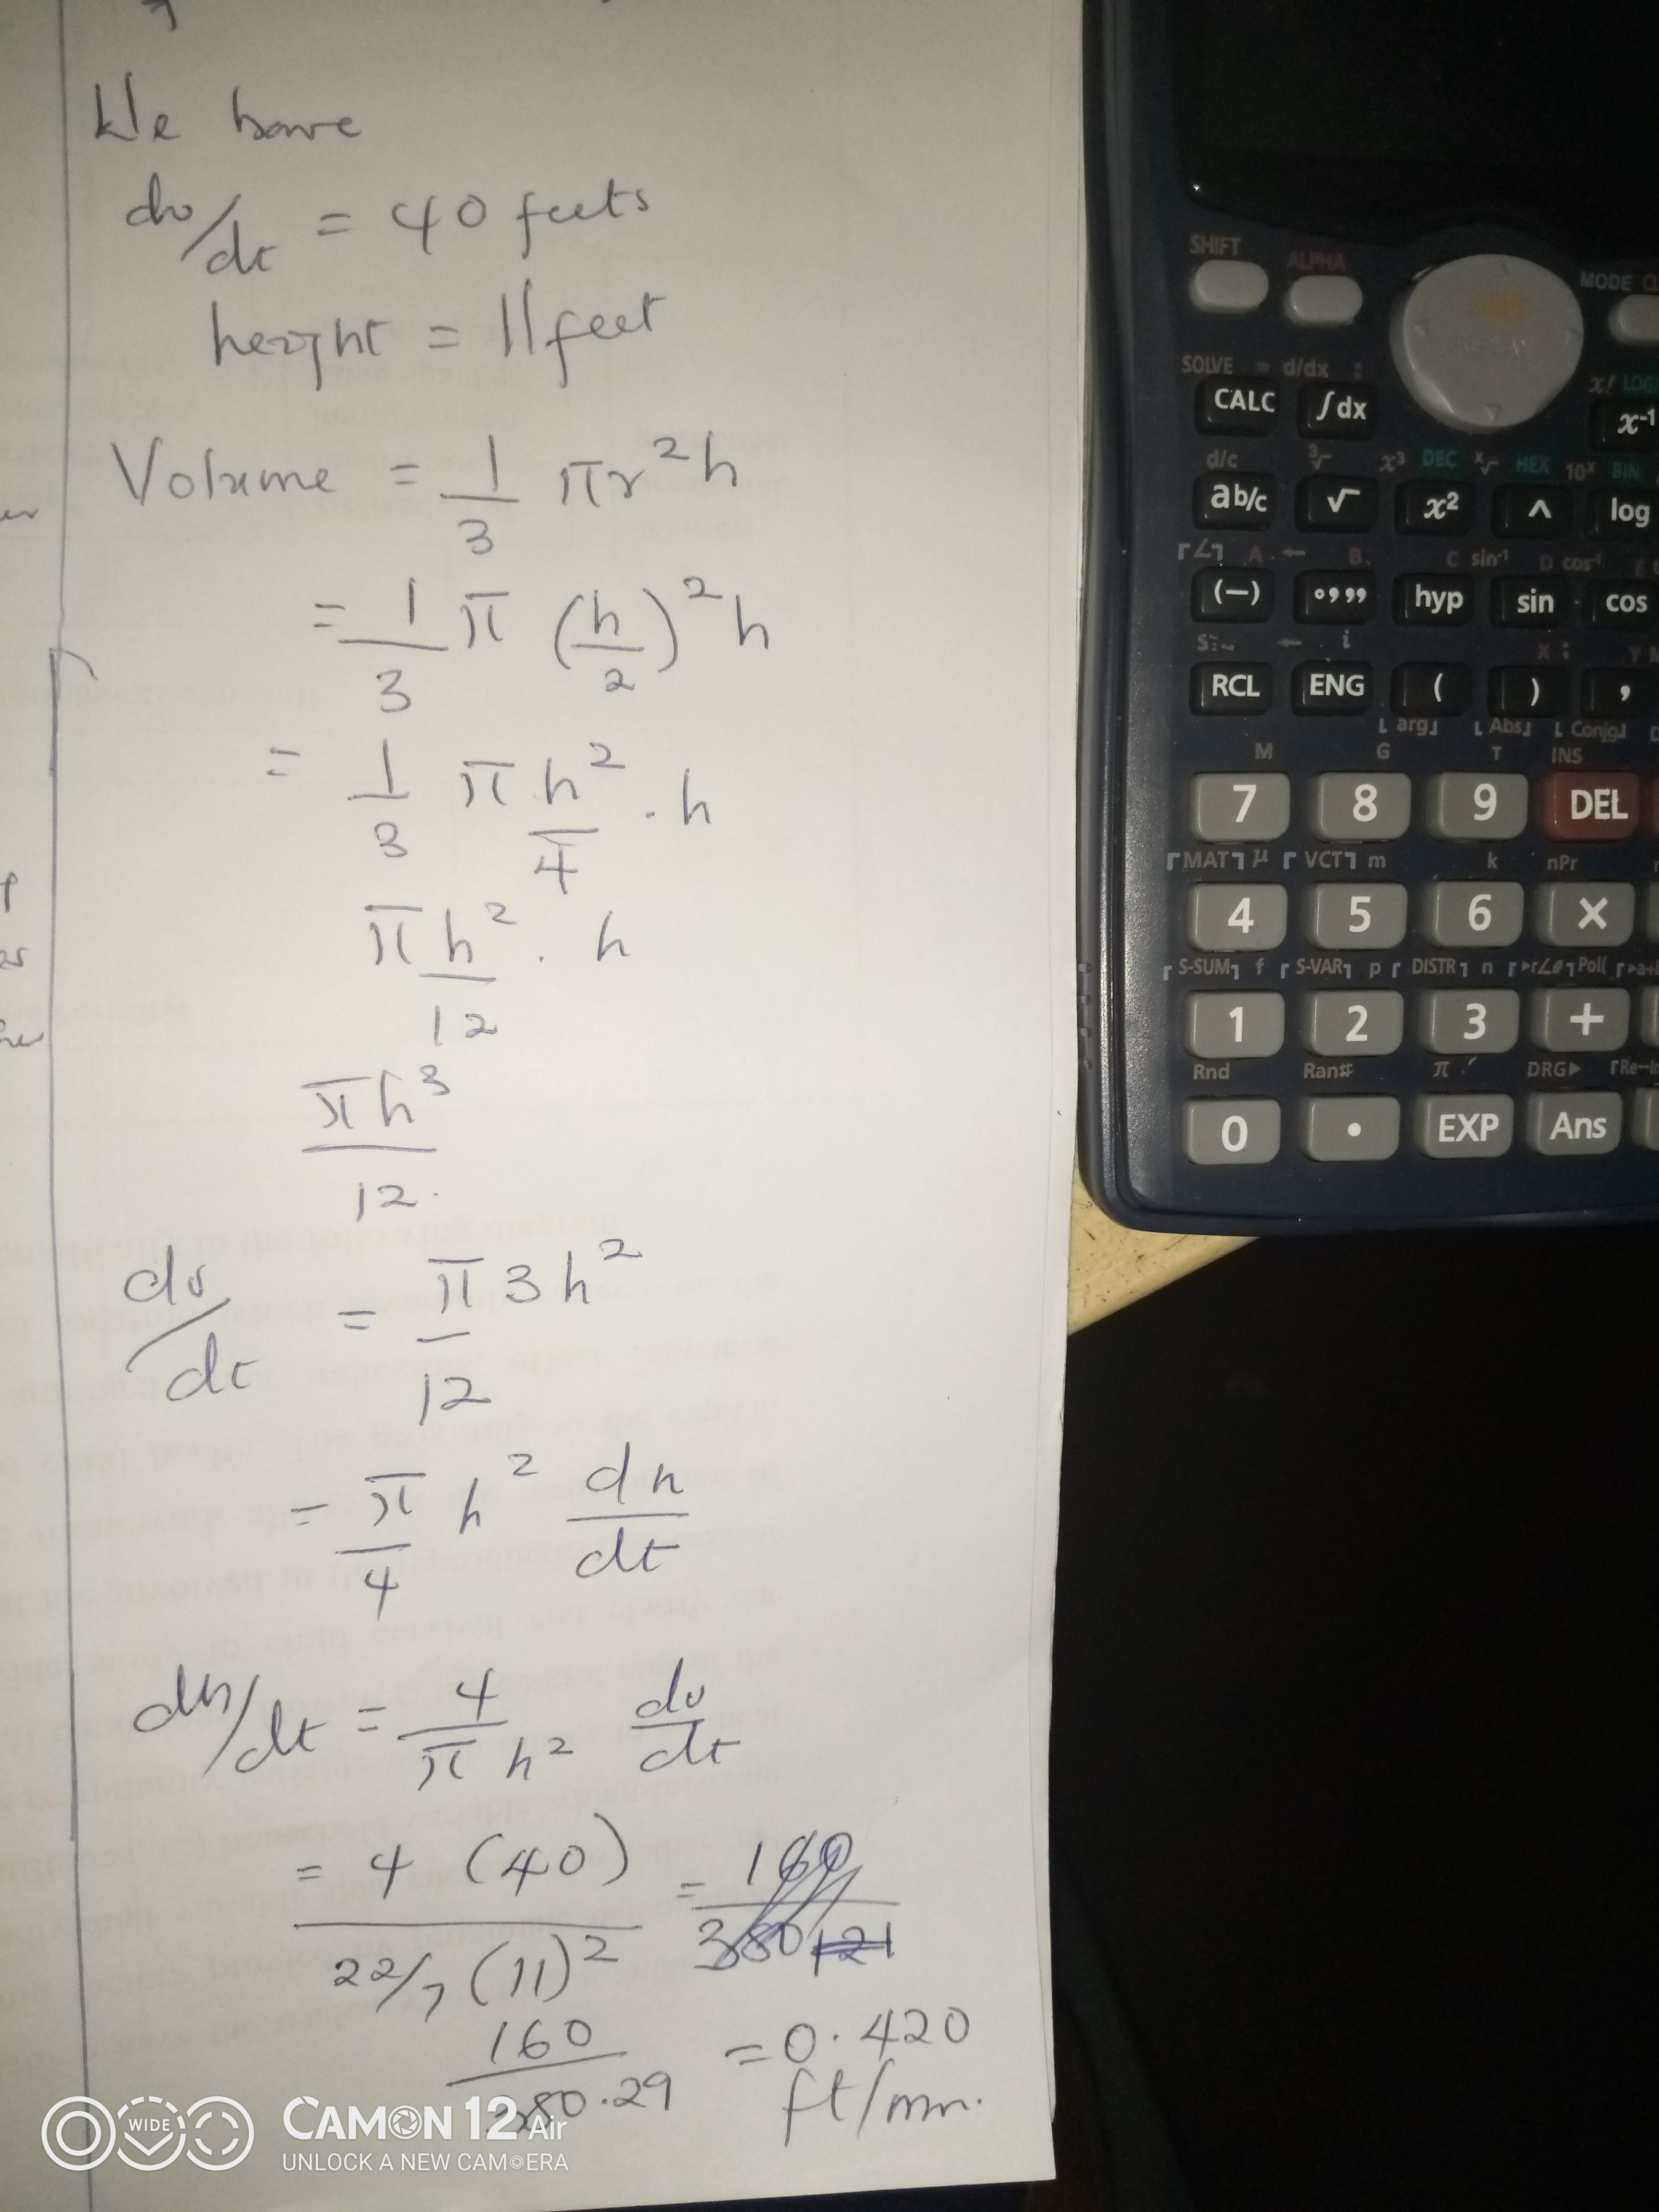 We have
dv/dt = 40 feets
height = 11 feet
Volume = 1/3 πr²h
= 1/3 π (h/2)² h
= 1/3 π h²/4 . h
π h²/12 . h
πh³/12.
dv/dt = π/12 3h²
= π/4 h² dh/dt
dh/dt = 4/πh² dv/dt
= 4 (40) / 22/7 (11)² = 160/380 121
160/380.29 = 0.420
ft/min.
SHIFT ALPHA MODE
SOLVE = d/dx :
x! LOGI
CALC ∫dx x⁻¹
d/c ³√ x³ DEC ˣ√ HEX 10ˣ BIN
ab/c √ x² ^ log
A ← B C sin⁻¹ D cos⁻¹ E
(−) °,,, hyp sin cos
← i X ; Y M
RCL ENG ( ) ,
arg Abs Conjg
M G T INS
7 8 9 DEL
MAT μ VCT m k nPr
4 5 6 ×
S-SUM f S-VAR p DISTR n ▸r∠θ Pol( ▸a+
1 2 3 +
Rnd Ran# π DRG▸
0 . EXP Ans
WIDE
CAMON 12 Air
UNLOCK A NEW CAMERA